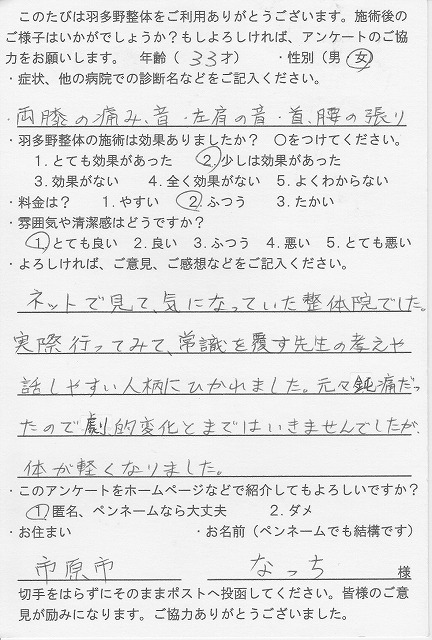 このたびは羽多野整体をご利用ありがとうございます。施術後の
ご様子はいかがでしょうか？もしよろしければ、アンケートのご協
力をお願いします。 年齢（ 33才） ・性別（男 女）
・症状、他の病院での診断名などをご記入ください。
・両膝の痛み、音・左肩の音・首、腰の張り
・羽多野整体の施術は効果ありましたか？ 〇をつけてください。
1. とても効果があった 2. 少しは効果があった
3. 効果がない 4. 全く効果がない 5. よくわからない
・料金は？ 1. やすい 2. ふつう 3. たかい
・雰囲気や清潔感はどうですか？
1. とても良い 2. 良い 3. ふつう 4. 悪い 5. とても悪い
・よろしければ、ご意見、ご感想などをご記入ください。
ネットで見て、気になっていた整体院でした。
実際行ってみて、常識を覆す先生の考えや
話しやすい人柄にひかれました。元々鈍痛だっ
たので劇的変化とまではいきませんでしたが、
体が軽くなりました。
・このアンケートをホームページなどで紹介してもよろしいですか？
1. 匿名、ペンネームなら大丈夫 2. ダメ
・お住まい ・お名前（ペンネームでも結構です）
市原市 なっち 様
切手をはらずにそのままポストへ投函してください。皆様のご意
見が励みになります。ご協力ありがとうございました。